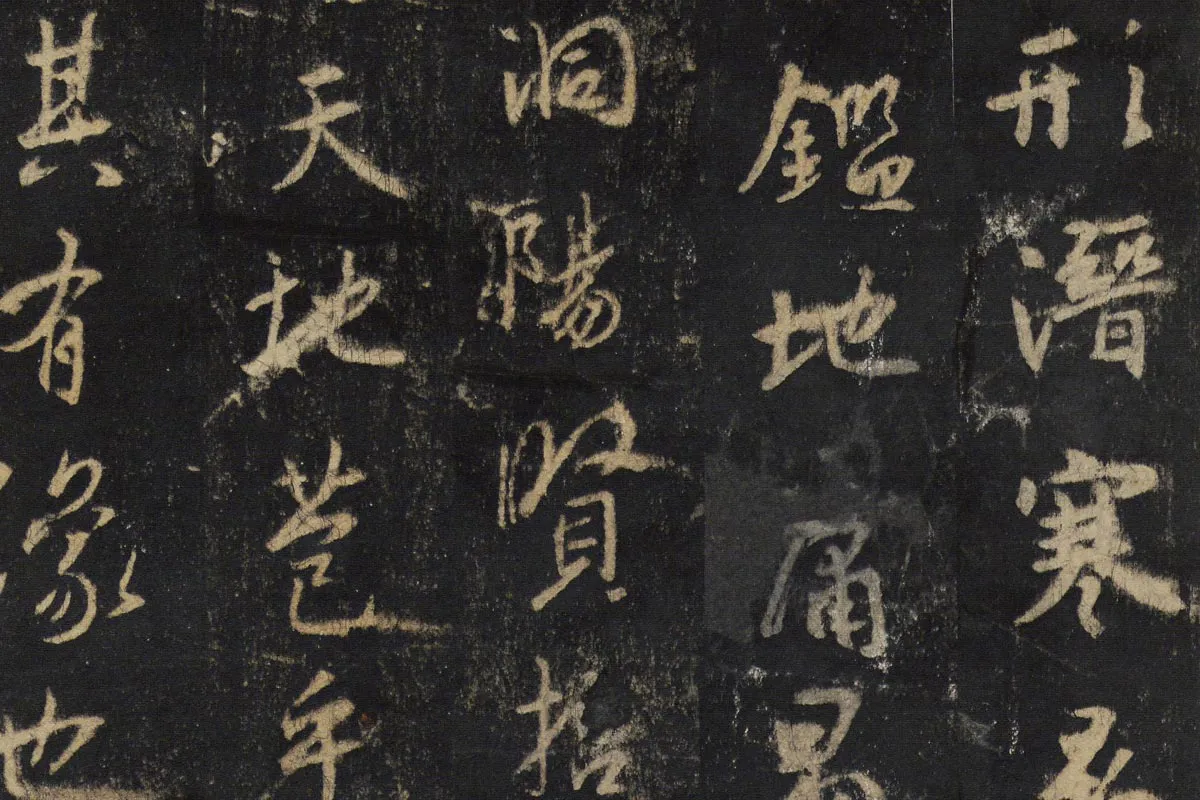 形潛寒
鑑地庸愚
洞陽賢哲
天地苞乎
其有像也